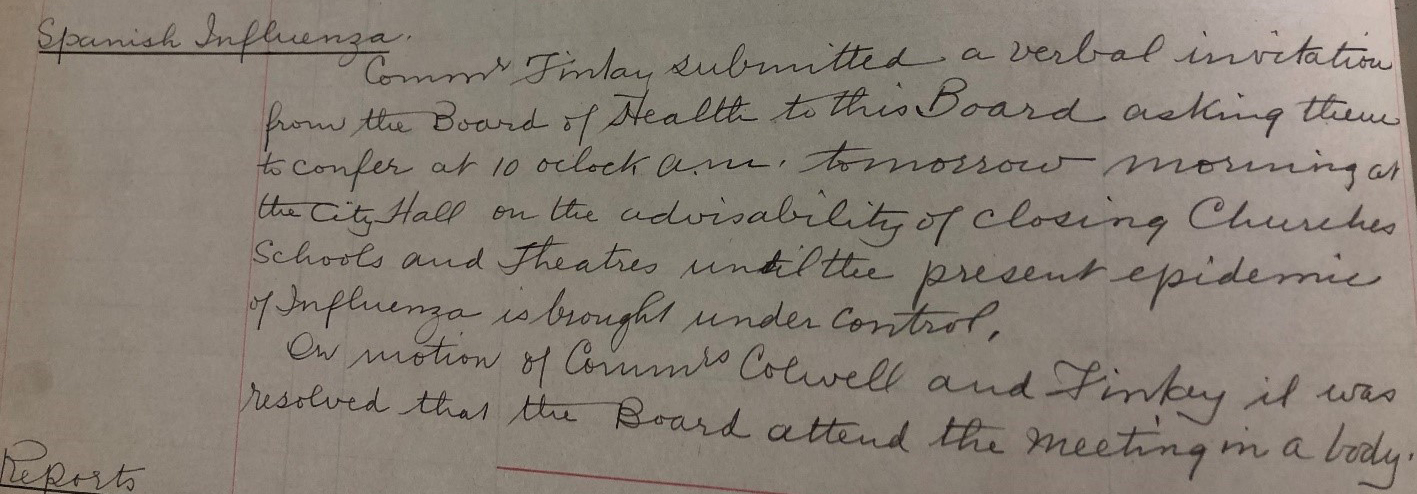 Spanish Influenza.
Commr Finlay submitted a verbal invitation
from the Board of Health to this Board asking them
to confer at 10 oclock a.m. tomorrow morning at
the City Hall on the advisability of closing Churches
Schools and Theatres until the present epidemic
of Influenza is brought under control.
On motion of Commrs Colwell and Finkey it was
resolved that the Board attend the meeting in a body.
Reports